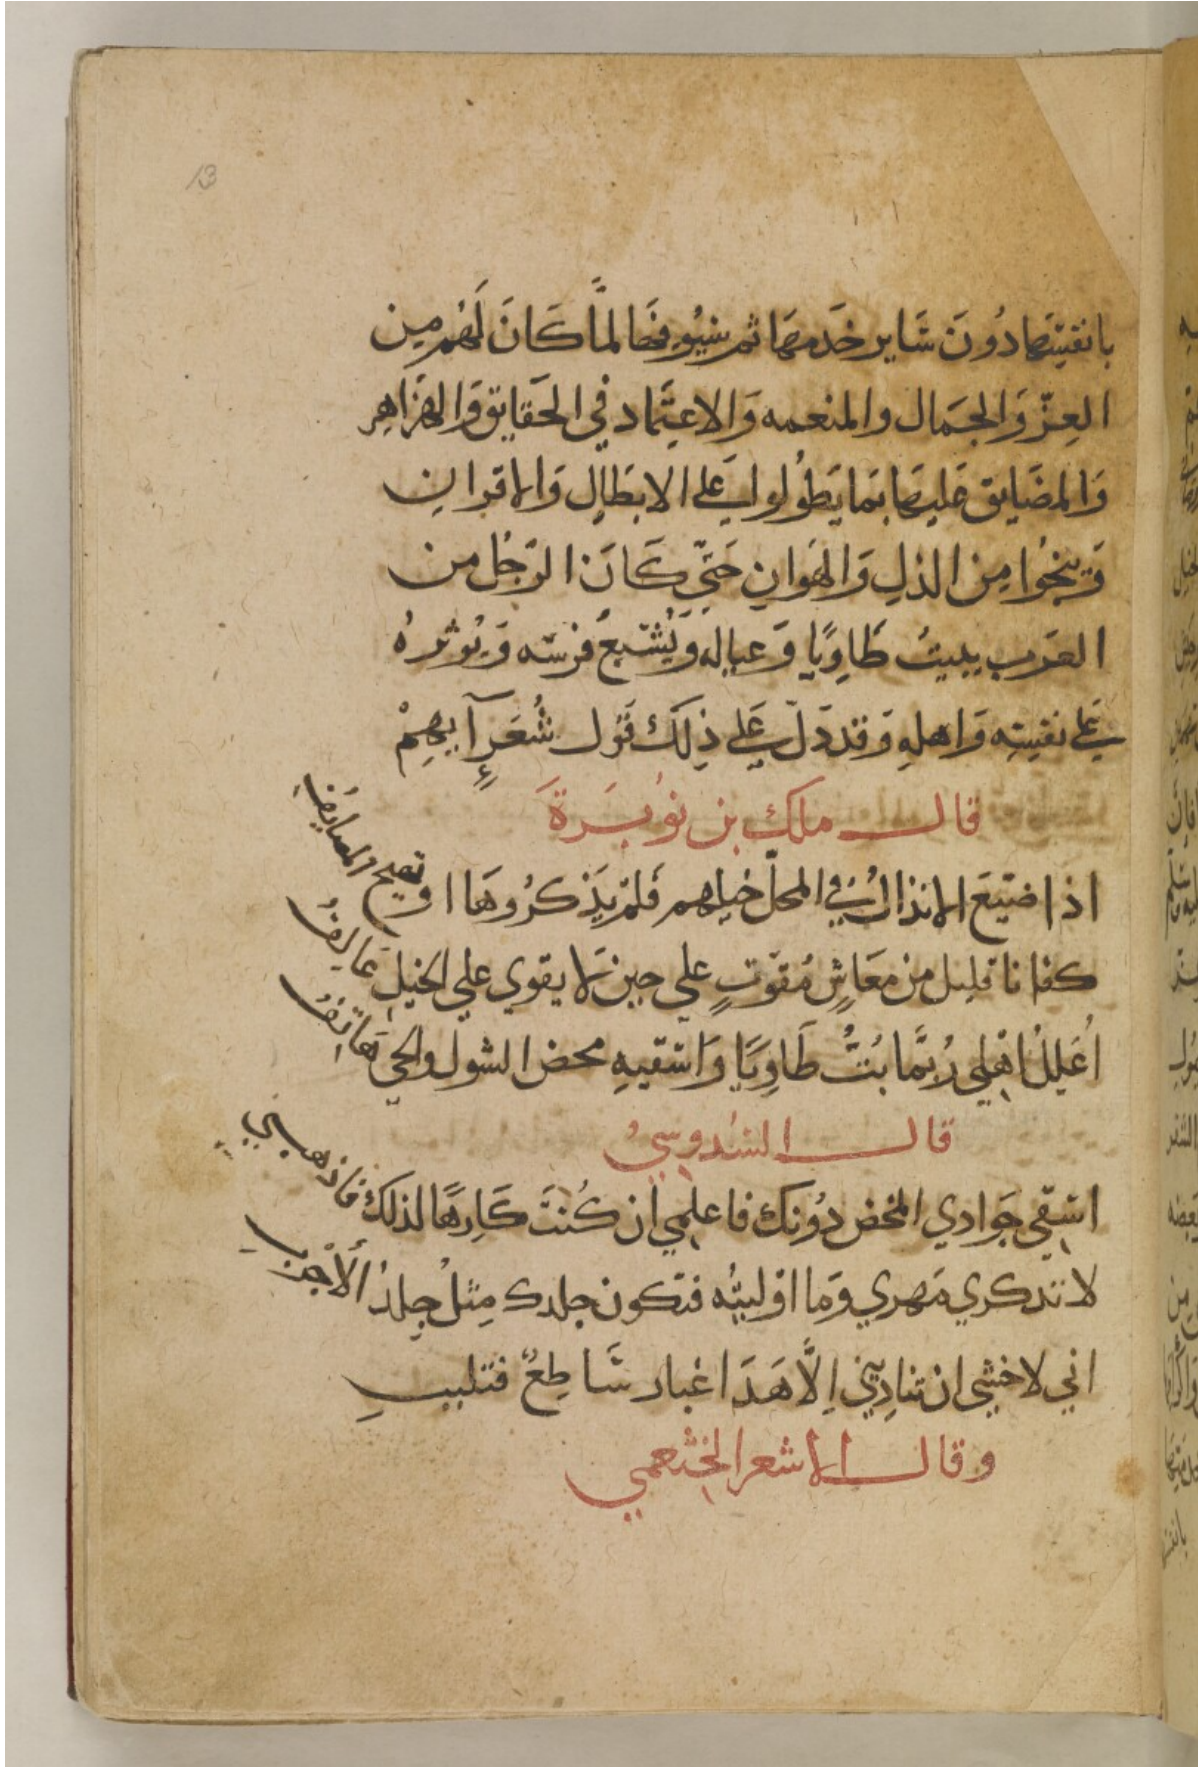 13
بانفسها دون ساير خدمها ثم بنيوفها لمّا كَانَ لَهُم مِن
العِزّ وَالجَمال والمنعمه وَالاعتماد في الحَقايق وَالهزاهِر
وَالمضَايق عَليها بمَا يَطوُلوا بِهَ عَلى الابطَالِ وَالاقرانِ
وَينجُوا مِن الذلِ وَالهَوانِ حَتّى كَانَ الرّجُل من
العَرب يبيتُ طَاوِيًا وَعياله وَيُشبعُ فرسَه وَيُوثرهُ
عَلى نفسِه وَاهلهِ وَقد دَلّ عَلى ذِلكَ قَول شُعَرآءِهِمْ
قال ملك بن نُويرَةَ
اذا ضيّعَ الانذالُ في المحلّ خيلهم فلمْ يَذكرُوهَا اوتصيح المصايفِ
كفانا قليل من مَعَاشٍ مُقوّتٍ على حين لا يقوي على الخيلِ عَالِفُ
اُعَللُ اهْلي رُبمَا بُتُّ طَاوِيًا وَاسْقيهِ محض الشول والحي هَاتِفُ
قال السَدوسيُ
اسْقي جَوادي المخض دُونك فاعلمي ان كُنتَ كَارِهًا لذلك فاذهبي
لا تذكري مَهري وَما اوليتُه فتكون جلدك مِثلُ جِلدُ الأجربِ
اني لاخشي ان تنادِيني اِلَّا هَذَا غبار سَاطِعٌ فتلبب
وقال الاشعر الخثعمي